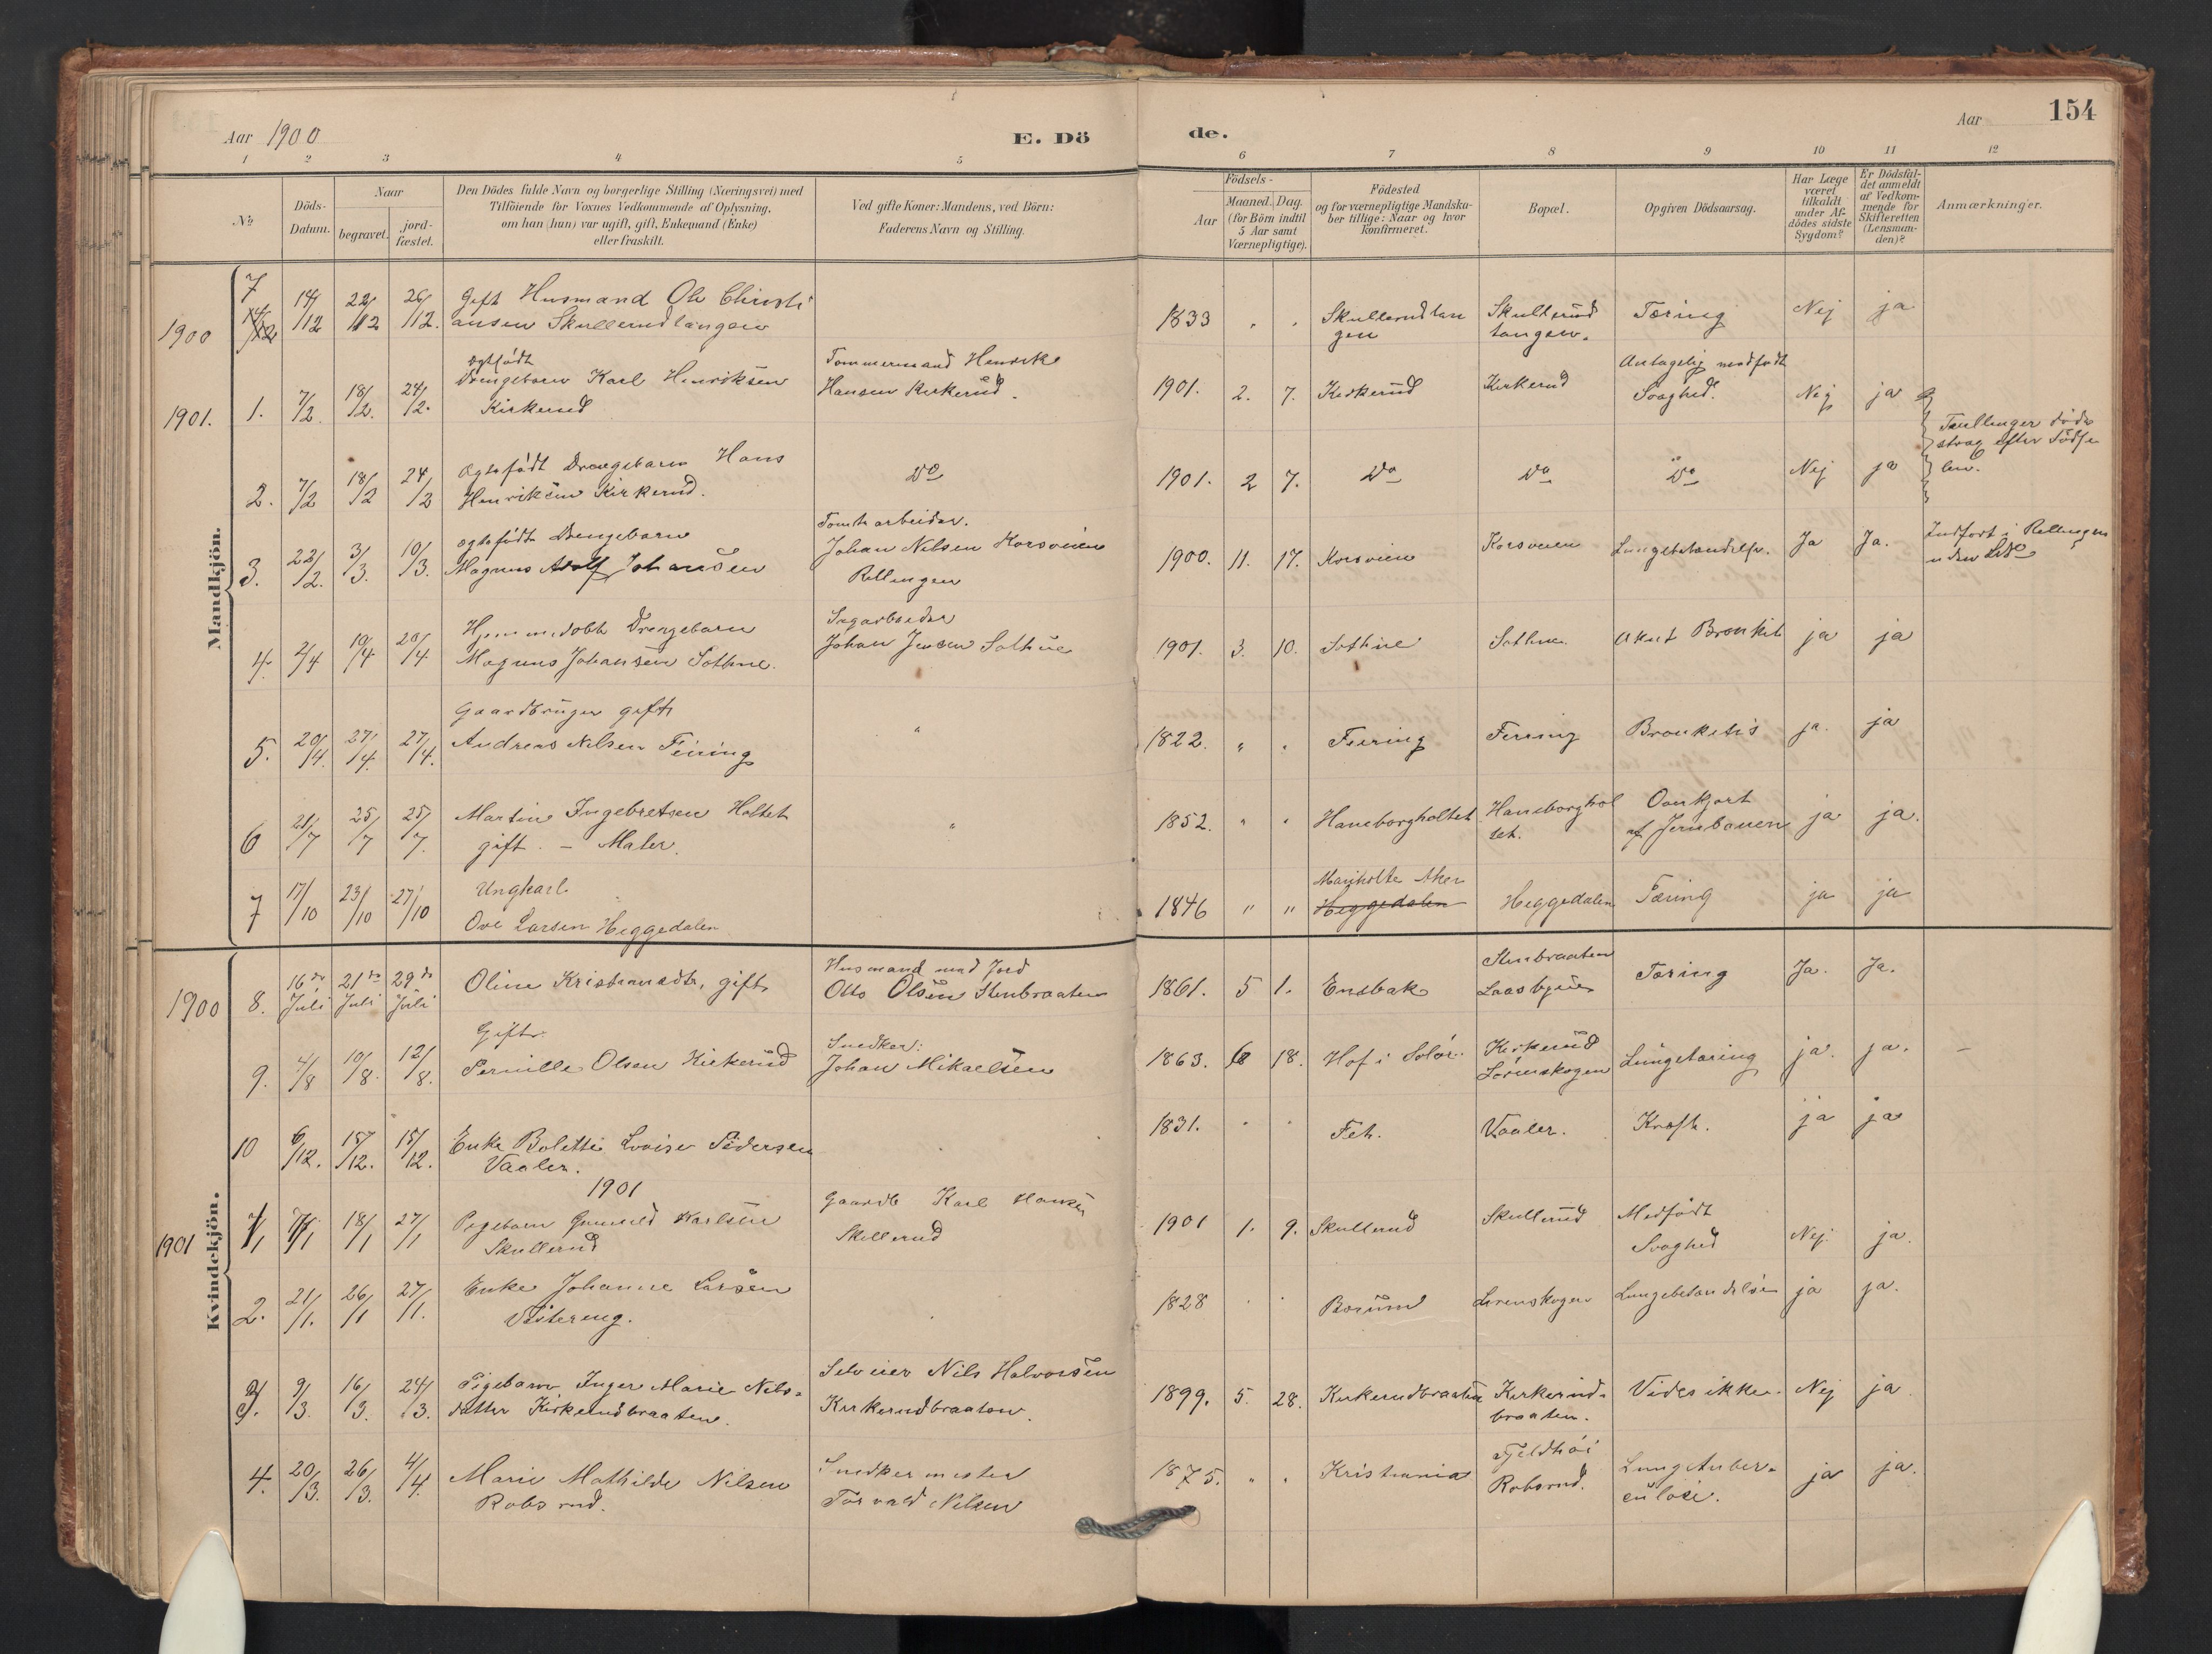 Aar 1900
E. Dö
de.
Aar
154
1 2 3 4 5 6 7 8 9 10 11 12
No
Döds-
Datum.
Naar
begravet.
jord-
fæstet.
Den Dödes fulde Navn og borgerlige Stilling (Næringsvei) med
Tilföiende for Voxnes Vedkommende af Oplysning,
om han (hun) var ugift, gift, Enkemand (Enke)
eller fraskilt.
Ved gifte Koner: Mandens, ved Börn:
Faderens Navn og Stilling.
Födsels-
Aar
Maaned. Dag.
(for Börn indtil
5 Aar samt
Værnepligtige).
Födested
og for værnepligtige Mandska-
ber tillige: Naar og hvor
konfirmeret.
Bopæl.
Opgiven Dödsaarsag.
Har Læge
været
tilkaldt
under Af-
dödes sidste
Sygdom?
Er Dödsfal-
det anmeldt
af Vedkom-
mende for
Skifteretten
(Lensman-
den)?
Anmærkninger.
Mandkjön.
1900
7
14/12 22/12 26/12. Gift Husmand Ole Christi
ansen Skullerudtangen
1833 " " Skullerudtan
gen
Skullerud
tangen.
Tæring Nej ja
1901. 1. 7/2 18/2. 24/2.
ægtefödt
Drengebarn Karl Henriksen
Kirkerud
Tommermand Henrik
Hansen Kirkerud.
1901. 2. 7. Kirkerud Kirkerud
Antagelig medfödt
Svaghed. Nej ja
Tvillinger döde
strag efter Födse
len.
2. 7/2 18/2 24/2
Ægtefödt Drengebarn Hans
Henriksen Kirkerud.
Do
1901. 2 7. Do Do Do Nej ja
3. 22/2. 3/3. 10/3.
ægtefödt Drengebarn
Magnus Adolf Johansen
Tomtearbeider.
Johan Nilsen Korsveien
Rellingen
1900. 11. 17. Korsveien Korsveien Lungebetændelse. Ja Ja.
Indfört i Rellingen
uden
4. 2/4 10/4 20/4
Hjemmedöbt Drengebarn
Magnus Johansen Sothne.
Sagarbeider
Johan Jensen Sothne
1901. 3. 10. Sothne Sothne Akut Bronkit ja ja
5. 20/4. 27/4. 27/4.
Gaardbruger gift
Andreas Nilsen Feiring
"
1822. " " Feiring Feiring Bronkitis ja. ja
6 21/7 25/7 25/7.
Martin Ingebretsen Holtet
gift. – Maler.
"
1852. " " Haneborgholtet Haneborghol
tet.
Overkjört
af Jernbanen ja ja.
7 17/10 23/10 27/10
Ungkarl
Ole Larsen Heggedalen
1846 " " Mariholte Aker
Heggedalen
Heggedalen Tæring ja ja
Kvindekjön.
1900 8. 16de Juli 21de Juli 29de Juli
Oline Kristiansdtr, gift
Husmand med Jord
Otto Olsen Stenbraaten
1861. 5 1. Enebak
Stenbraaten
Laasbyen
Tæring Ja. Ja.
9. 4/8 10/8. 12/8.
Gift.
Pernille Olsen Kirkerud
Snedker:
Johan Mikaelsen
1863. 6 18. Hof i Solör.
Kirkerud
Lörenskogen
Lungetæring ja. ja. –
10 6/12. 15/12. 15/12.
Enke Bolette Lovise Pedersen
Vaaler.
1831. " " Fet. Vaaler. Kræft. ja ja
1901
1901 1 18/1 27/1
Pigebarn Gunhild Karlsen
Skullerud
Gaardb Karl Hansen
Skullerud
1901 1. 9. Skullerud Skullerud
Medfödt
Svaghed Nej. ja.
2. 21/1. 26/1 27/1.
Enke Johanne Larsen
1828 " " Bærum Lørenskogen Lungebetændelse ja ja.
3. 9/3. 16/3. 24/3.
Pigebarn Inger Marie Nils-
datter Kirkerudbraaten.
Selveier Nils Halvorsen
Kirkerudbraaten.
1899. 5. 28. Kirkerudbraaten Kirkerud-
braaten.
Vides ikke. Nej ja
4. 20/3. 26/3. 4/4.
Marie Mathilde Nilsen
Robsrud.
Snedkermester
Torvald Nilsen
1875. " " Kristiania
Fjeldhöi
Robsrud.
Lungetuber-
culose. ja ja.